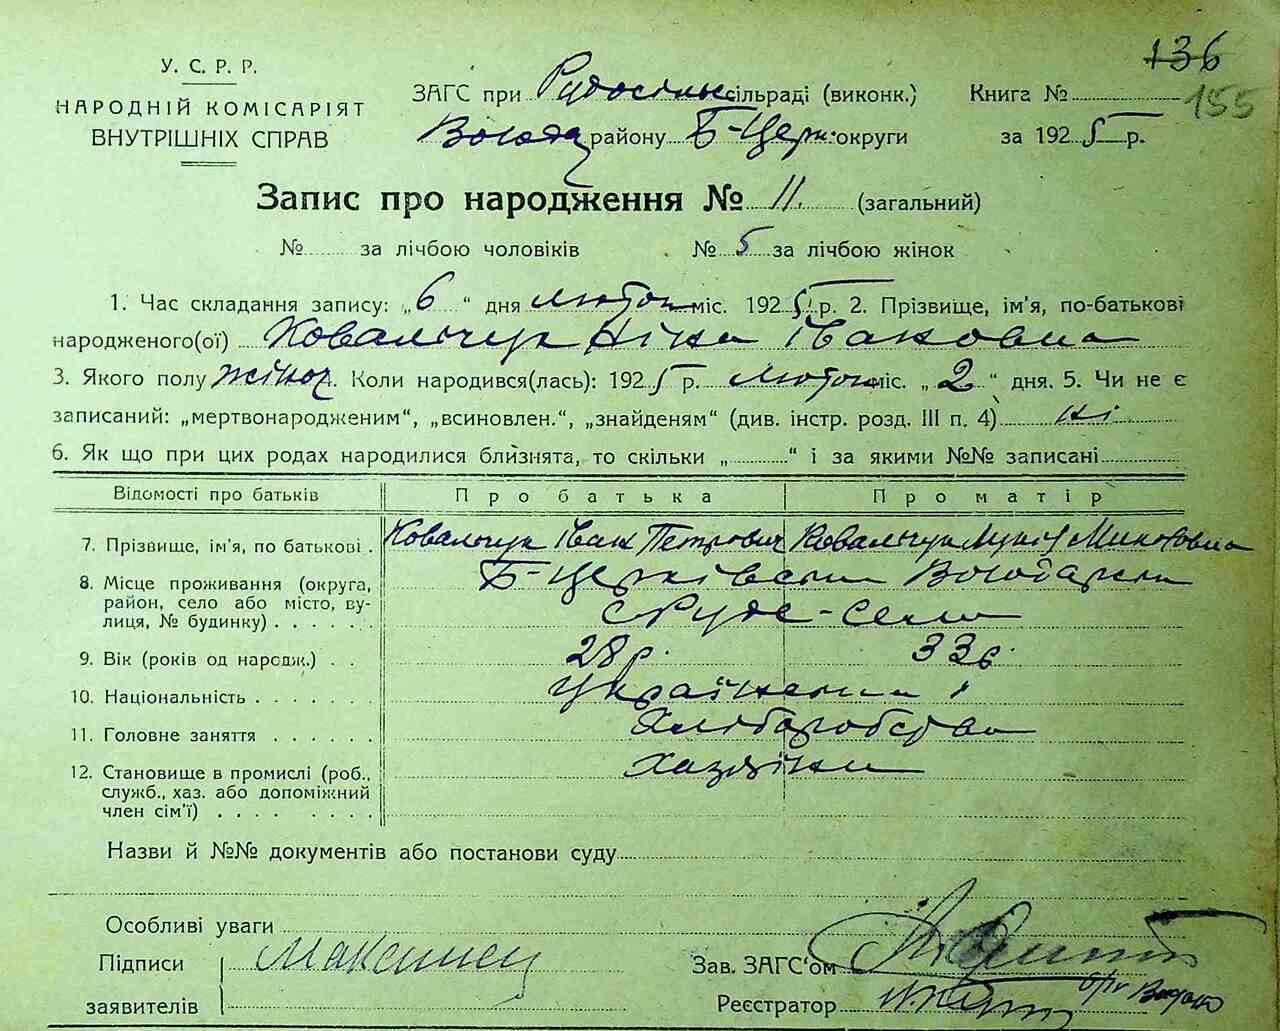 136
155
У. С. Р. Р.
НАРОДНІЙ КОМІСАРІЯТ
ВНУТРІШНІХ СПРАВ
ЗАГС при Рудосільс сільраді (виконк.) Книга №
району Б-Церк. округи за 1925 р.
Запис про народження № 11. (загальний)
№ за лічбою чоловіків № 5 за лічбою жінок
1. Час складання запису: „6“ дня лютого міс. 1925 р. 2. Прізвище, ім'я, по-батькові
народженого(ої) Ковальчук Ніна Івановна
3. Якого полу жіноч. 4. Коли народився(лась): 1925 р. лютого міс. „2“ дня. 5. Чи не є
записаний: „мертвонародженим“, „всиновлен.“, „знайденям“ (див. інстр. розд. III п. 4) ні
6. Як що при цих родах народилися близнята, то скільки „ “ і за якими №№ записані
Відомості про батьків Про батька Про матір
7. Прізвище, ім'я, по батькові . Ковальчук Іван Петрович Ковальчук
8. Місце проживання (округа, Б-Церківська
район, село або місто, ву- с Руде-село
лиця, № будинку) . . . . .
9. Вік (років од народж.) . . 28 р. 33 р.
10. Національність . . . . . . . український
11. Головне заняття . . . . . . Хліборобство
12. Становище в промислі (роб.,
служб., хаз. або допоміжний
член сім'ї) . . . . . . . .
Назви й №№ документів або постанови суду
Особливі уваги
Підписи
Зав. ЗАГС'ом
заявителів
Реєстратор